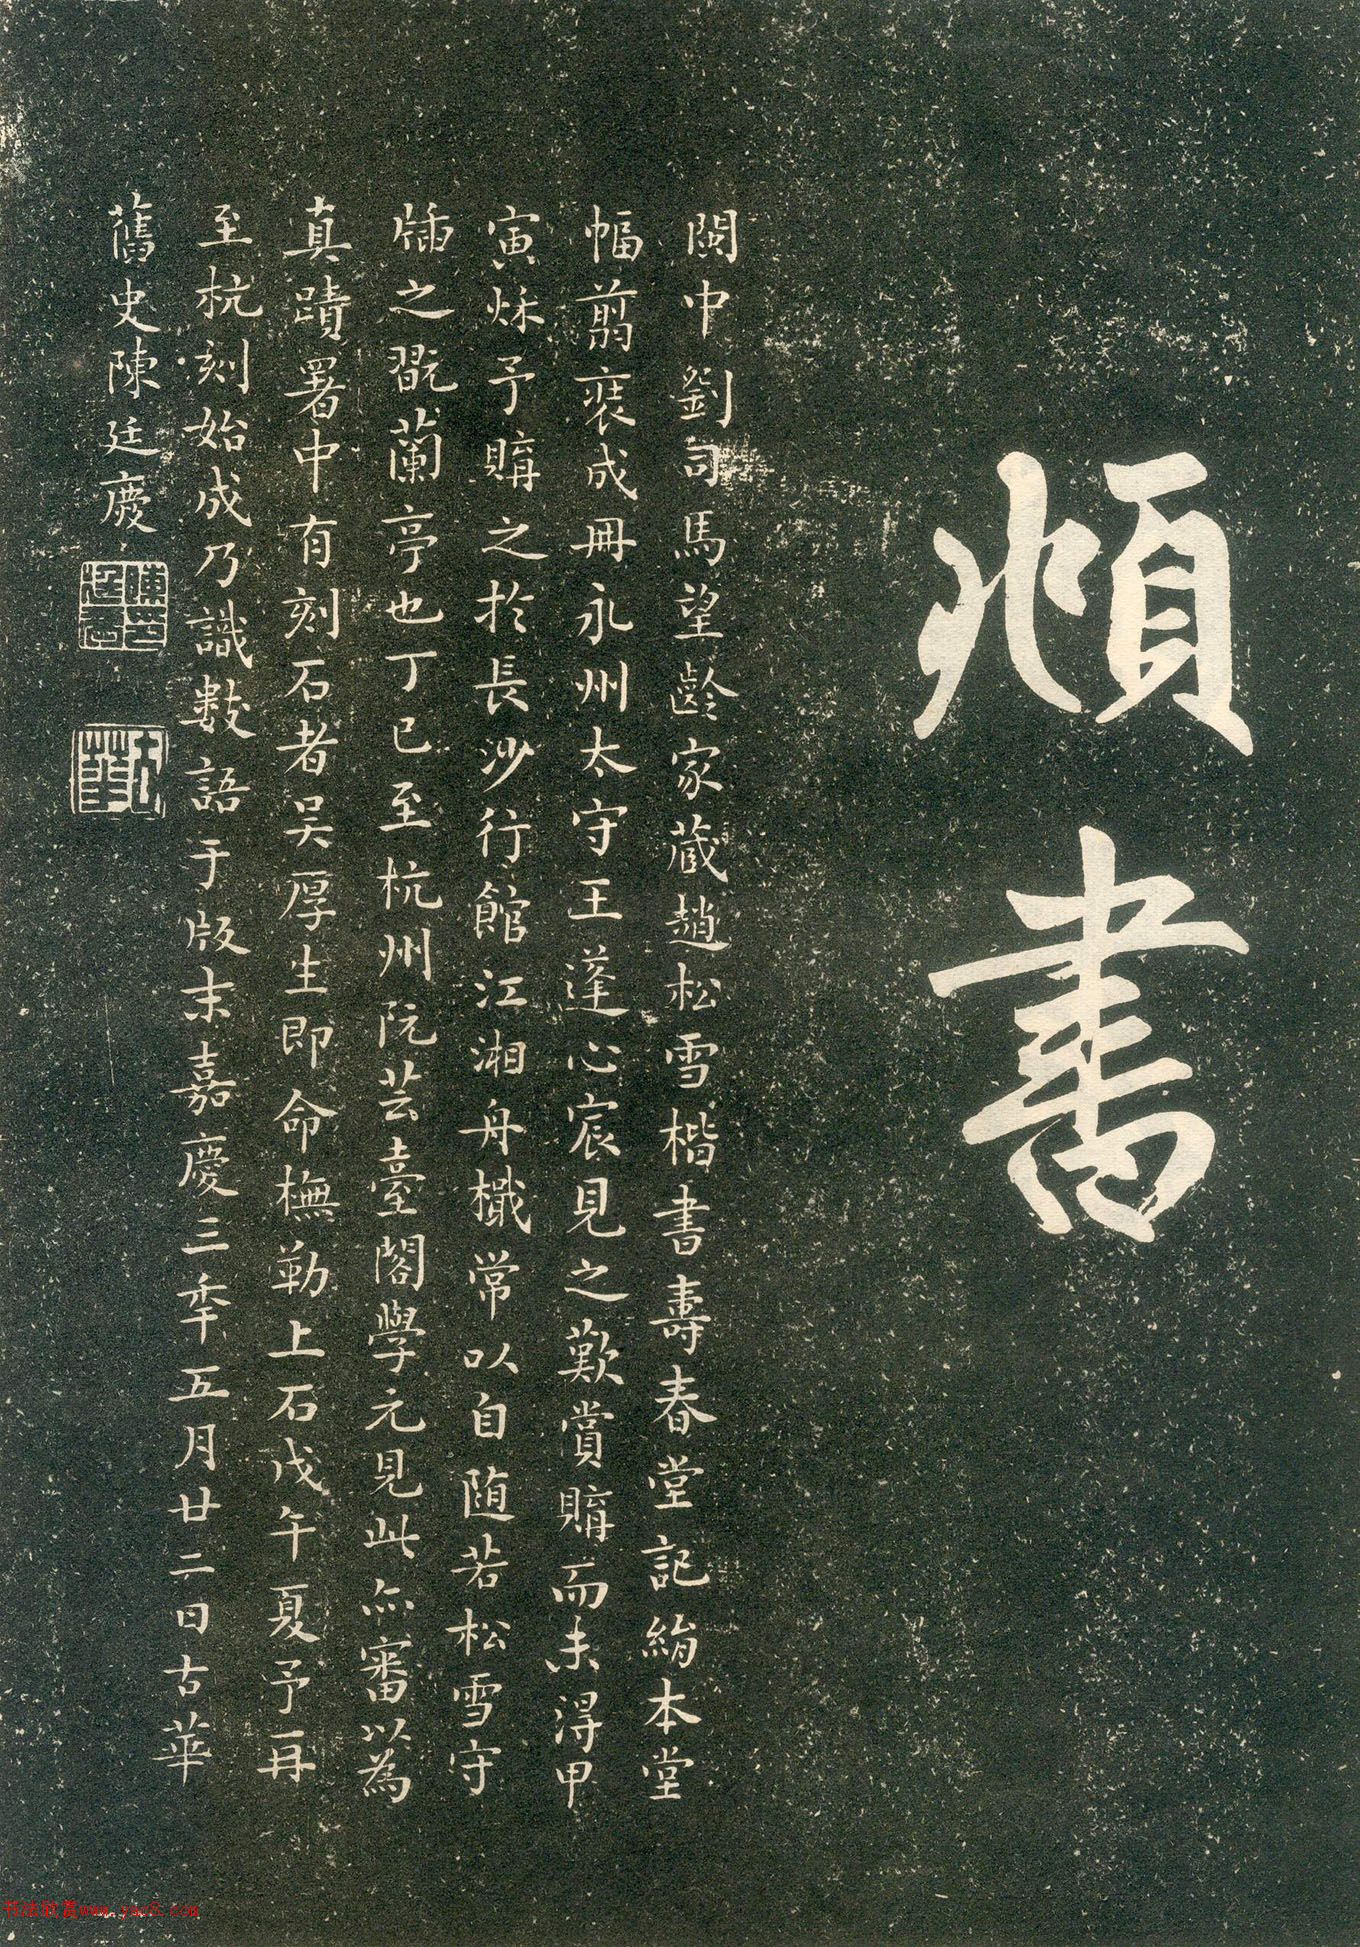 頫書
閩中劉司馬望齡家藏趙松雪楷書壽春堂記絹本堂
幅翦裝成冊永州太守王蓬心宸見之歎賞購而未得甲
寅秌予購之於長沙行館江湘舟檝常以自随若松雪守
牐之翫蘭亭也丁巳至杭州阮芸臺閣學元見此亦審以為
真蹟署中有刻石者吳厚生即命橅勒上石戊午夏予再
至杭刻始成乃識數語于版末嘉慶三秊五月廿二日古華
舊史陳廷慶
古華
书法欣赏www.yac8.com